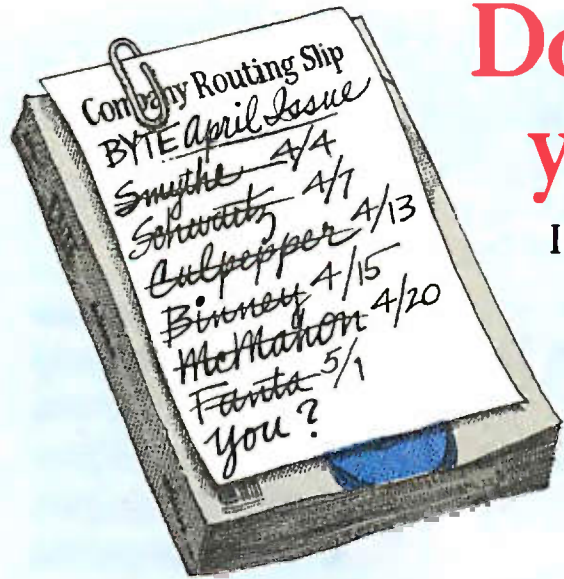 Do
y
I
Company Routing Slip
BYTE April Issue
Smythe 4/4
Schwartz 4/7
Culpepper 4/13
Binney 4/15
McMahon 4/20
Fanta 5/1
You?